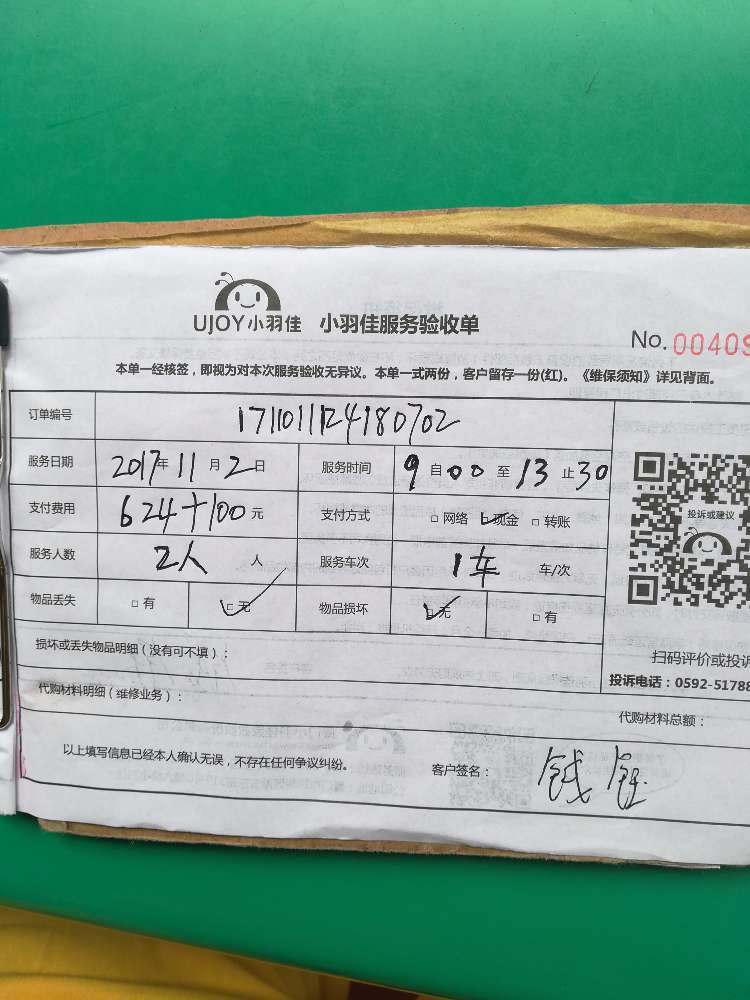 UJOY小羽佳 小羽佳服务验收单
No. 00409
本单一经核签，即视为对本次服务验收无异议。本单一式两份，客户留存一份(红)。《维保须知》详见背面。
订单编号 171101124180702
服务日期 2017年11月2日 服务时间 9自00至13止30
支付费用 624+100元 支付方式 □网络 □现金 □转账
服务人数 2人 人 服务车次 1车 车/次
物品丢失 □有 □无 物品损坏 □无 □有
投诉或建议
损坏或丢失物品明细（没有可不填）：
扫码评价或投诉
投诉电话：0592-51788
代购材料明细（维修业务）：
代购材料总额：
以上填写信息已经本人确认无误，不存在任何争议纠纷。 客户签名： 钱